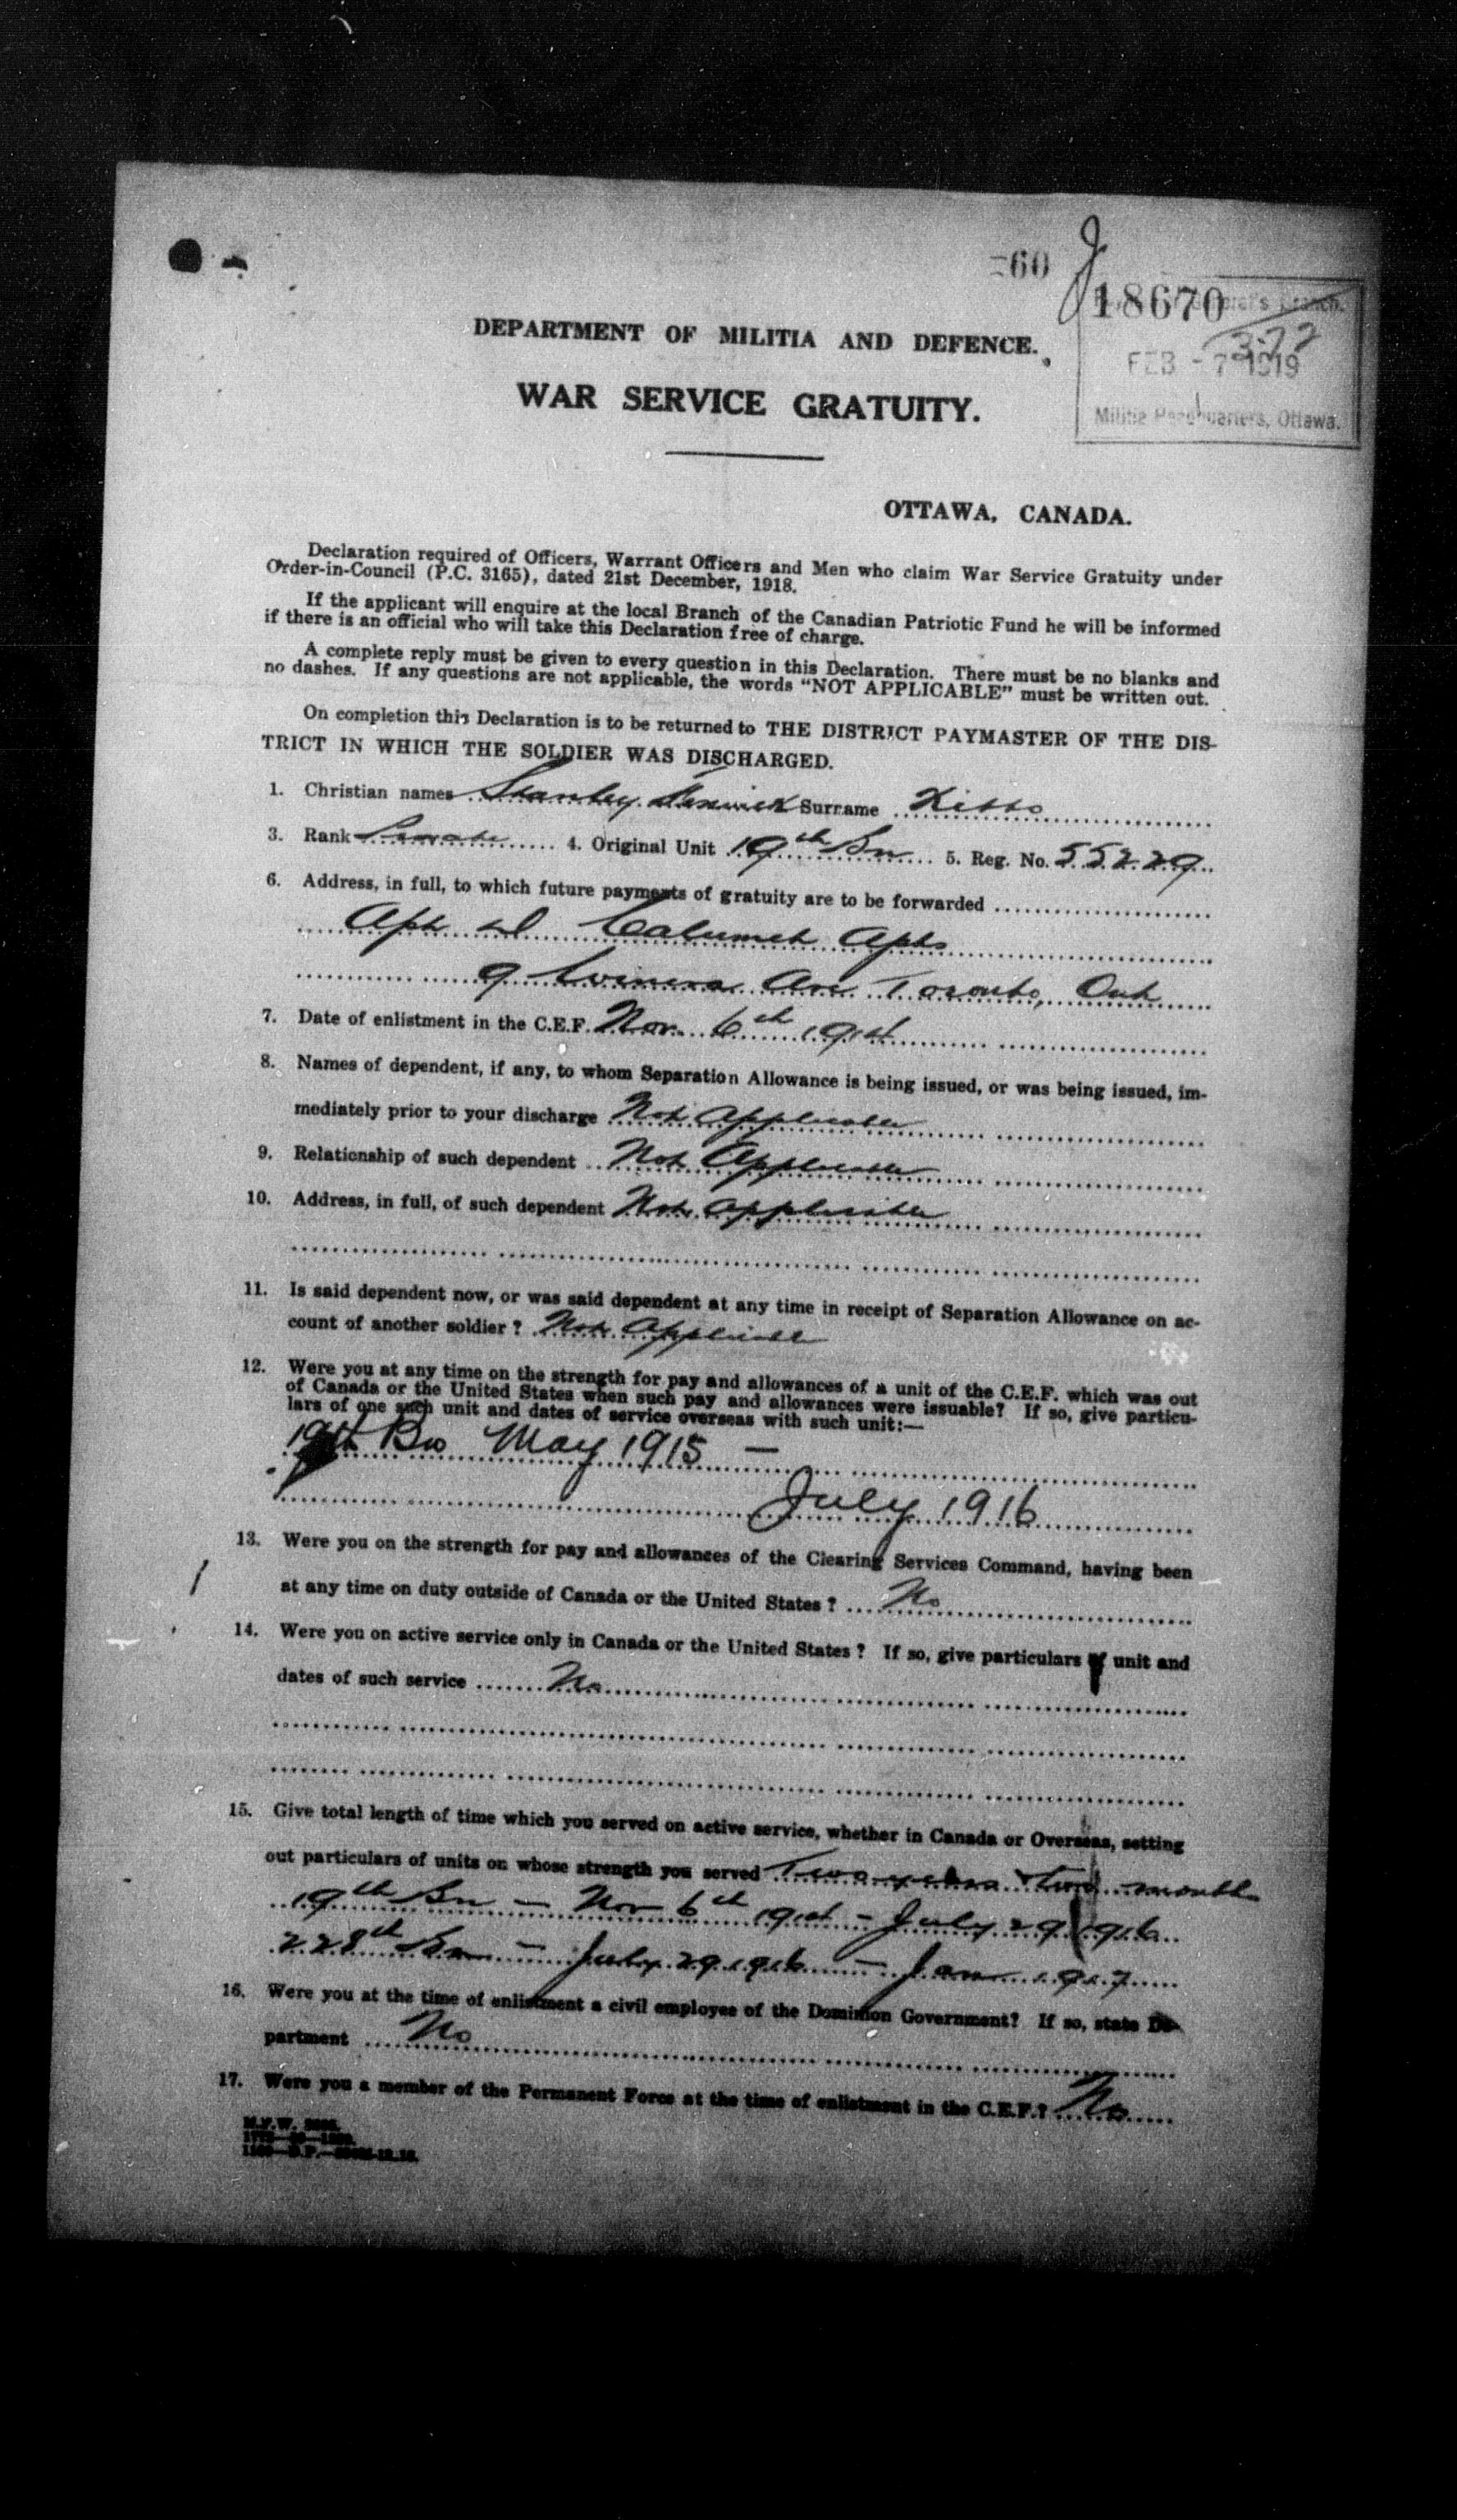 60
18670
3-72
FEB - 7 1919
Militia Headquarters, Ottawa.
DEPARTMENT OF MILITIA AND DEFENCE.
WAR SERVICE GRATUITY.
OTTAWA, CANADA.
Declaration required of Officers, Warrant Officers and Men who claim War Service Gratuity under
Order-in-Council (P.C. 3165), dated 21st December, 1918.
If the applicant will enquire at the local Branch of the Canadian Patriotic Fund he will be informed
if there is an official who will take this Declaration free of charge.
A complete reply must be given to every question in this Declaration. There must be no blanks and
no dashes. If any questions are not applicable, the words “NOT APPLICABLE” must be written out.
On completion this Declaration is to be returned to THE DISTRICT PAYMASTER OF THE DIS-
TRICT IN WHICH THE SOLDIER WAS DISCHARGED.
1. Christian names Stanley Surname Kitto
3. Rank Private 4. Original Unit 19th Bn 5. Reg. No. 55229
6. Address, in full, to which future payments of gratuity are to be forwarded
Apt Calumet Apts
9 Ave Toronto, Ont
7. Date of enlistment in the C.E.F. Nov. 6th 1914
8. Names of dependent, if any, to whom Separation Allowance is being issued, or was being issued, im-
mediately prior to your discharge Not Applicable
9. Relationship of such dependent Not Applicable
10. Address, in full, of such dependent Not Applicable
11. Is said dependent now, or was said dependent at any time in receipt of Separation Allowance on ac-
count of another soldier? Not Applicable
12. Were you at any time on the strength for pay and allowances of a unit of the C.E.F. which was out
of Canada or the United States when such pay and allowances were issuable? If so, give particu-
lars of one such unit and dates of service overseas with such unit:—
19th Bn May 1915 —
July 1916
13. Were you on the strength for pay and allowances of the Clearing Services Command, having been
at any time on duty outside of Canada or the United States? No
14. Were you on active service only in Canada or the United States? If so, give particulars of unit and
dates of such service No
15. Give total length of time which you served on active service, whether in Canada or Overseas, setting
out particulars of units on whose strength you served Two years two months
19th Bn — Nov 6th 1914 — July 29 1916
228th Bn — July 29 1916 — Jan 1917
16. Were you at the time of enlistment a civil employee of the Dominion Government? If so, state De-
partment No
17. Were you a member of the Permanent Force at the time of enlistment in the C.E.F.? No
M.F.W.